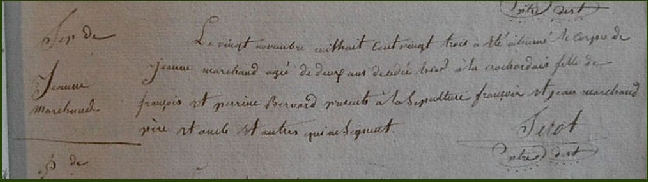 Sep de
Jeanne
Marchand
Le vingt novembre mil huit cent vingt trois a été inhumé le corps de
Jeanne marchand agée de deux ans décédée hier à la fille de
françois et perrine Bernard présents à la sepulture françois et jean marchand
père et oncle et autres qui ne signent.
S de